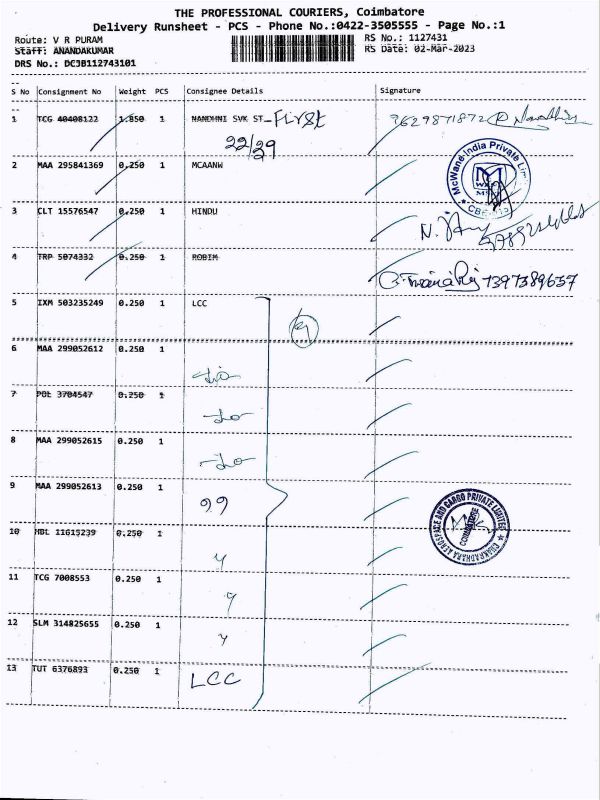 THE PROFESSIONAL COURIERS, Coimbatore
Delivery Runsheet - PCS - Phone No.:0422-3505555 - Page No.:1
Route: V R PURAM RS No.: 1127431
Staff: ANANDAKUMAR RS Date: 02-Mar-2023
DRS No.: DCJB112743101
S No Consignment No Weight PCS Consignee Details Signature
1 TCG 40408122 1.850 1 NANDHNI SVK ST - First 9629871872
22/29
2 MAA 295841369 0.250 1 MCAANW
McWane India Private Limited
3 CLT 15576547 0.250 1 HINDU
4 TRP 5074332 0.250 1 ROBIM
7397389657
5 IXM 503235249 0.250 1 LCC
6 MAA 299052612 0.250 1 -do-
7 POL 3704547 0.250 1 -do-
8 MAA 299052615 0.250 1 -do-
9 MAA 299052613 0.250 1
CHAKRADHARA AEROSPACE AND CARGO PRIVATE LIMITED
COIMBATORE
10 HBL 11615239 0.250 1
11 TCG 7008553 0.250 1
12 SLM 314825655 0.250 1
13 TUT 6376893 0.250 1 LCC